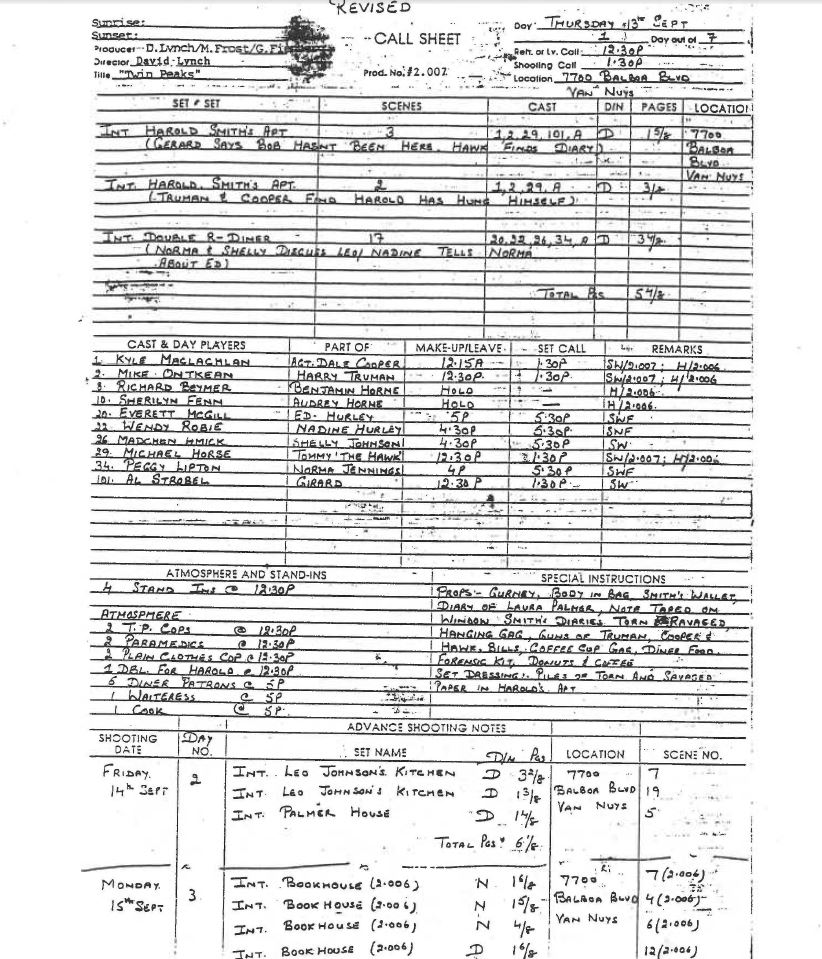 REVISED
Sunrise:
Sunset:
Producer D. Lynch/M. Frost/G.
Director David Lynch
Title "Twin Peaks"
CALL SHEET
Prod. No. #2.007
Day THURSDAY 13th SEPT
1 Day out of 7
Reh. or Lv. Call: 12:30P
Shooting Call 1:30P
Location 7700 BALBOA BLVD
VAN NUYS
SET # SET SCENES CAST D/N PAGES LOCATION
INT HAROLD SMITH'S APT 3 1,2,29,101,A D 1 5/8 7700
(GERARD SAYS BOB HASNT BEEN HERE. HAWK FINDS DIARY) BALBOA
BLVD
VAN NUYS
INT. HAROLD. SMITH'S APT. 2 1,2,29.A D
(TRUMAN & COOPER FIND HAROLD HAS HUNG HIMSELF)
INT. DOUBLE R-DINER 17 20,22,26,34,A D
(NORMA & SHELLY DISCUSS LEO/ NADINE TELLS NORMA
ABOUT ED)
TOTAL PGS 5 4/8
CAST & DAY PLAYERS PART OF MAKE-UP/LEAVE SET CALL REMARKS
1. KYLE MACLACHLAN AGT. DALE COOPER 12:15A 1:30P SW/2.007; H/2.006
2. MIKE ONTKEAN HARRY TRUMAN 12:30P 1:30P SW/2.007; H/2.006
8. RICHARD BEYMER BENJAMIN HORNE HOLD — H/2.006
10. SHERILYN FENN AUDREY HORNE HOLD — H/2.006
20. EVERETT MCGILL ED. HURLEY 5P 5:30P SWF
22 WENDY ROBIE NADINE HURLEY 4:30P 5:30P SWF
26 MADCHEN AMICK SHELLY JOHNSON 4:30P 5:30P SW
29. MICHAEL HORSE TOMMY 'THE HAWK' 12:30P 1:30P SW/2.007; H/2.006
34. PEGGY LIPTON NORMA JENNINGS 4P 5:30P SWF
101. AL STROBEL GIRARD 12:30P 1:30P SW
ATMOSPHERE AND STAND-INS
4 STAND INS @ 12:30P
ATMOSPHERE
2 T.P. COPS @ 12:30P
2 PARAMEDICS @ 12:30P
2 PLAIN CLOTHES COP @ 12:30P
1 DBL. FOR HAROLD @ 12:30P
6 DINER PATRONS @ 5P
1 WAITERESS @ 5P
1 COOK @ 5P
SPECIAL INSTRUCTIONS
PROPS:- GURNEY, BODY IN BAG, SMITH'S WALLET,
DIARY OF LAURA PALMER, NOTE TAPED ON
WINDOW SMITH'S DIARIES TORN RAVAGED
HANGING GAG, GUNS OF TRUMAN, COOPER &
HAWK, BILLS, COFFEE CUP GAG, DINER FOOD
FORENSIC KIT, DONUTS & COFFEE
SET DRESSING:- PILES OF TORN AND SAVAGED
PAPER IN HAROLD'S. APT
ADVANCE SHOOTING NOTES
SHOOTING DATE DAY NO. SET NAME D/N PGS LOCATION SCENE NO.
FRIDAY. 14th SEPT 2 INT. LEO JOHNSON'S KITCHEN D 3 2/8 7700 7
INT. LEO JOHNSON'S KITCHEN D 1 3/8 BALBOA BLVD 19
INT. PALMER HOUSE D 1 4/8 VAN NUYS 5
TOTAL PGS: 6 1/8
MONDAY 15th SEPT 3 INT. BOOKHOUSE (2.006) N 1 6/8 7700 7(2.006)
INT. BOOK HOUSE (2.006) N 1 5/8 BALBOA BLVD 4(2.006)
INT. BOOK HOUSE (2.006) N 4/8 VAN NUYS 6(2.006)
INT. BOOK HOUSE (2.006) D 1 6/8 12(2.006)